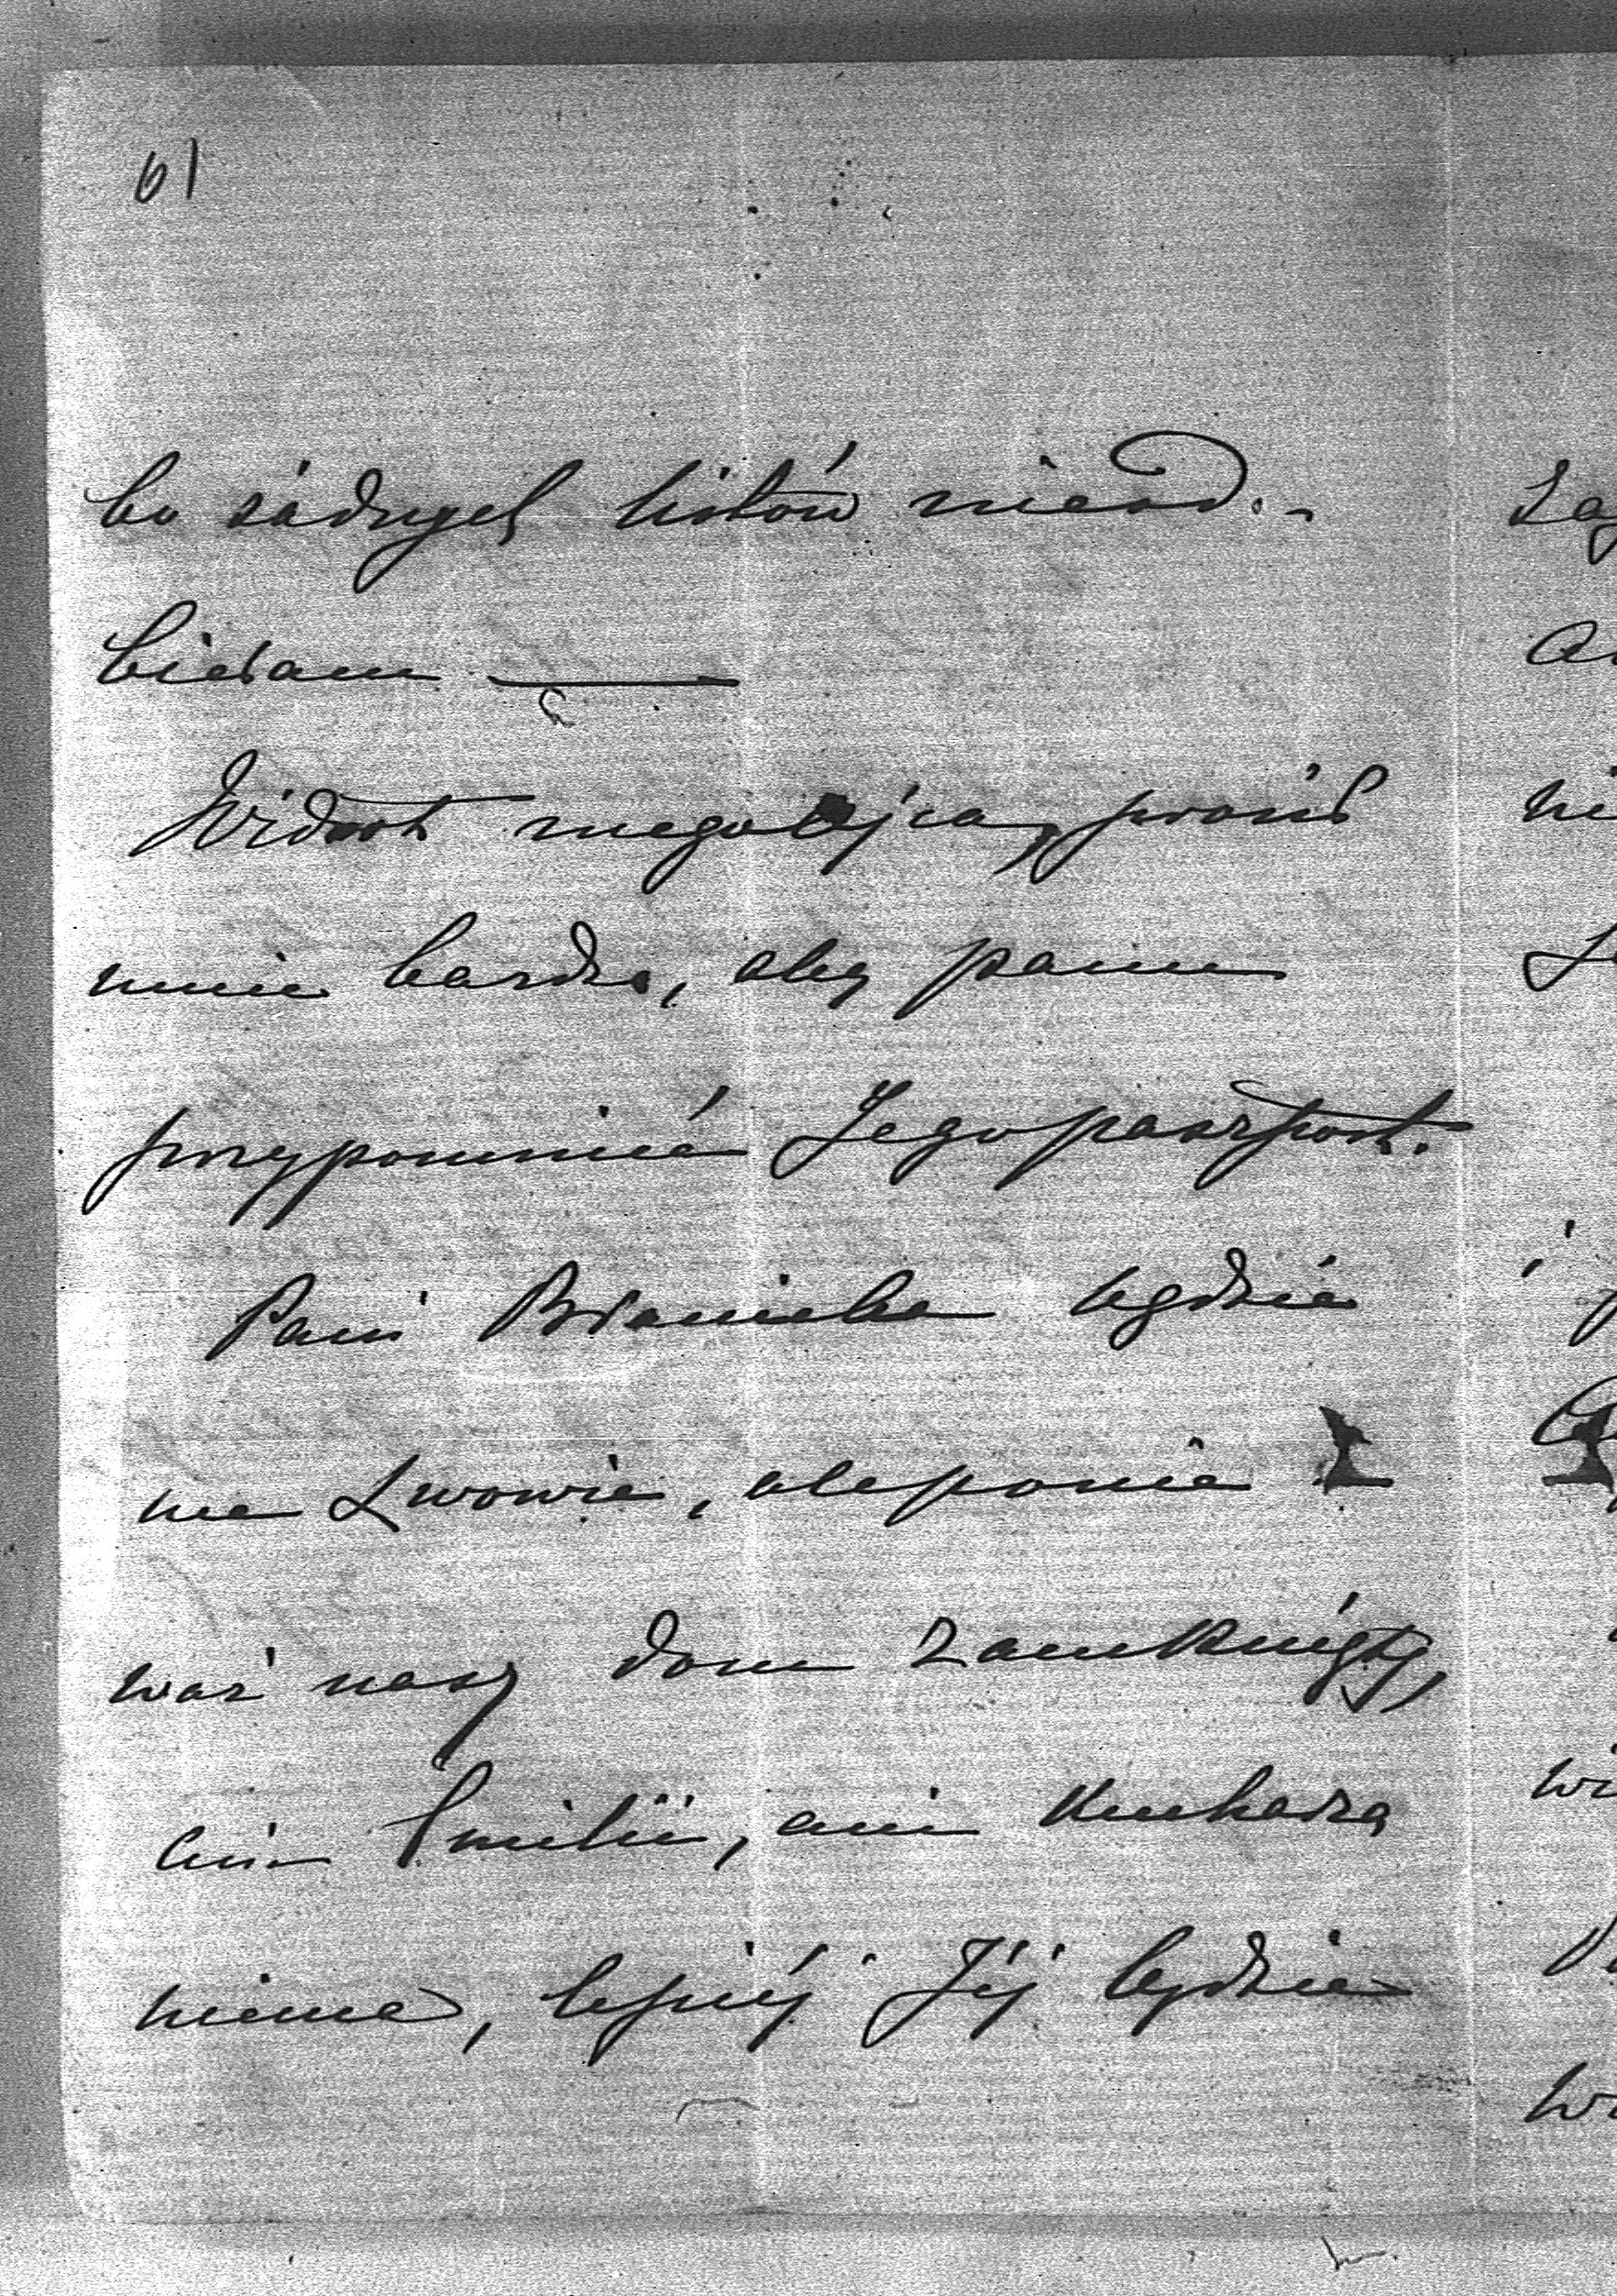 61
bo żadnych listów nieod.-
bieram —
Widort mego ojca, prosił
mnie bardzo, aby panu
przypomnieć Jego paszport.
Pani Bramicka będzie
we Lwowie, ale ponie
waż nasz dom zamknięty,
ani Emilii, ani Kucharza
niema, lepiéj Jéj będzie